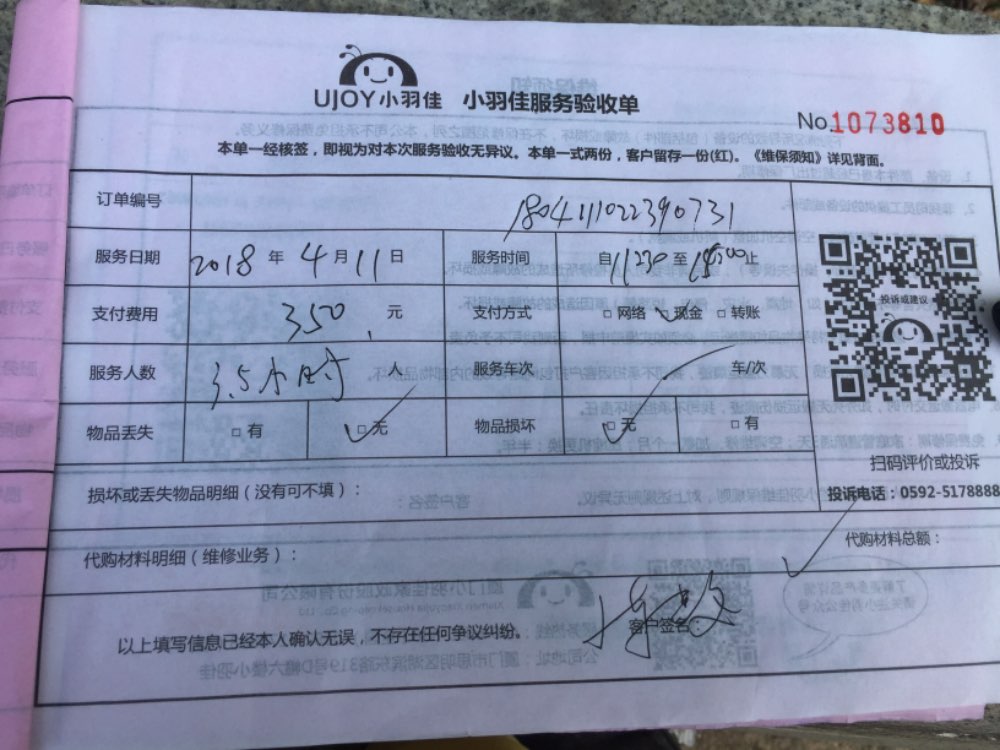 UJOY小羽佳 小羽佳服务验收单
No.1073810
本单一经核签，即视为对本次服务验收无异议。本单一式两份，客户留存一份(红)。《维保须知》详见背面。
订单编号 1804111022390731
服务日期 2018 年 4 月 11 日 服务时间 自 11:30 至 15:00 止
支付费用 350 元 支付方式 □ 网络 □ 现金 □ 转账
投诉或建议
服务人数 3.5小时 人 服务车次 车/次
物品丢失 □ 有 □ 无 物品损坏 □ 无 □ 有
扫码评价或投诉
损坏或丢失物品明细（没有可不填）：
投诉电话：0592-5178888
代购材料明细（维修业务）：
代购材料总额：
以上填写信息已经本人确认无误，不存在任何争议纠纷。 客户签名：